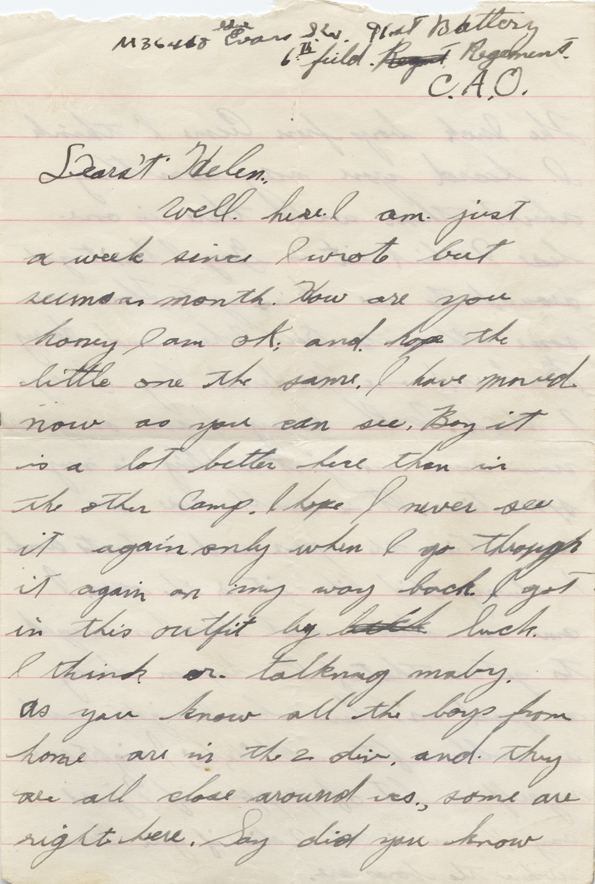 M36468 Gnr Evans S.W. 91st Battery
6th field. Regt Regement.
C.A.O.
Dears't Helen,
Well. here I am. just
a week since I wrote but
seems a month. How are you
honey I am ok, and. hope the
little one the same. I have moved
now as you can see. Boy it
is a lot better here than in
the other Camp. I hope I never see
it again only when I go through
it again on my way back. I got
in this outfit by luck.
I think or. talking maby.
as you know all the boys from
home are in the 2 div. and. they
are all close around us., some are
right here. Say did you know